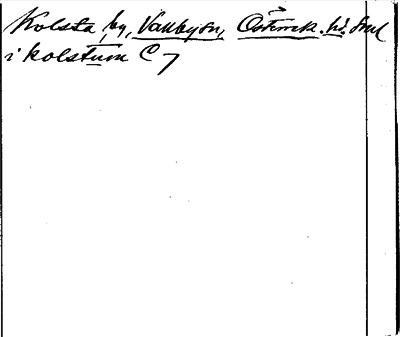 Kolsta by, Vallbysn, Österrek. hd. Sml
i kolstum C 7